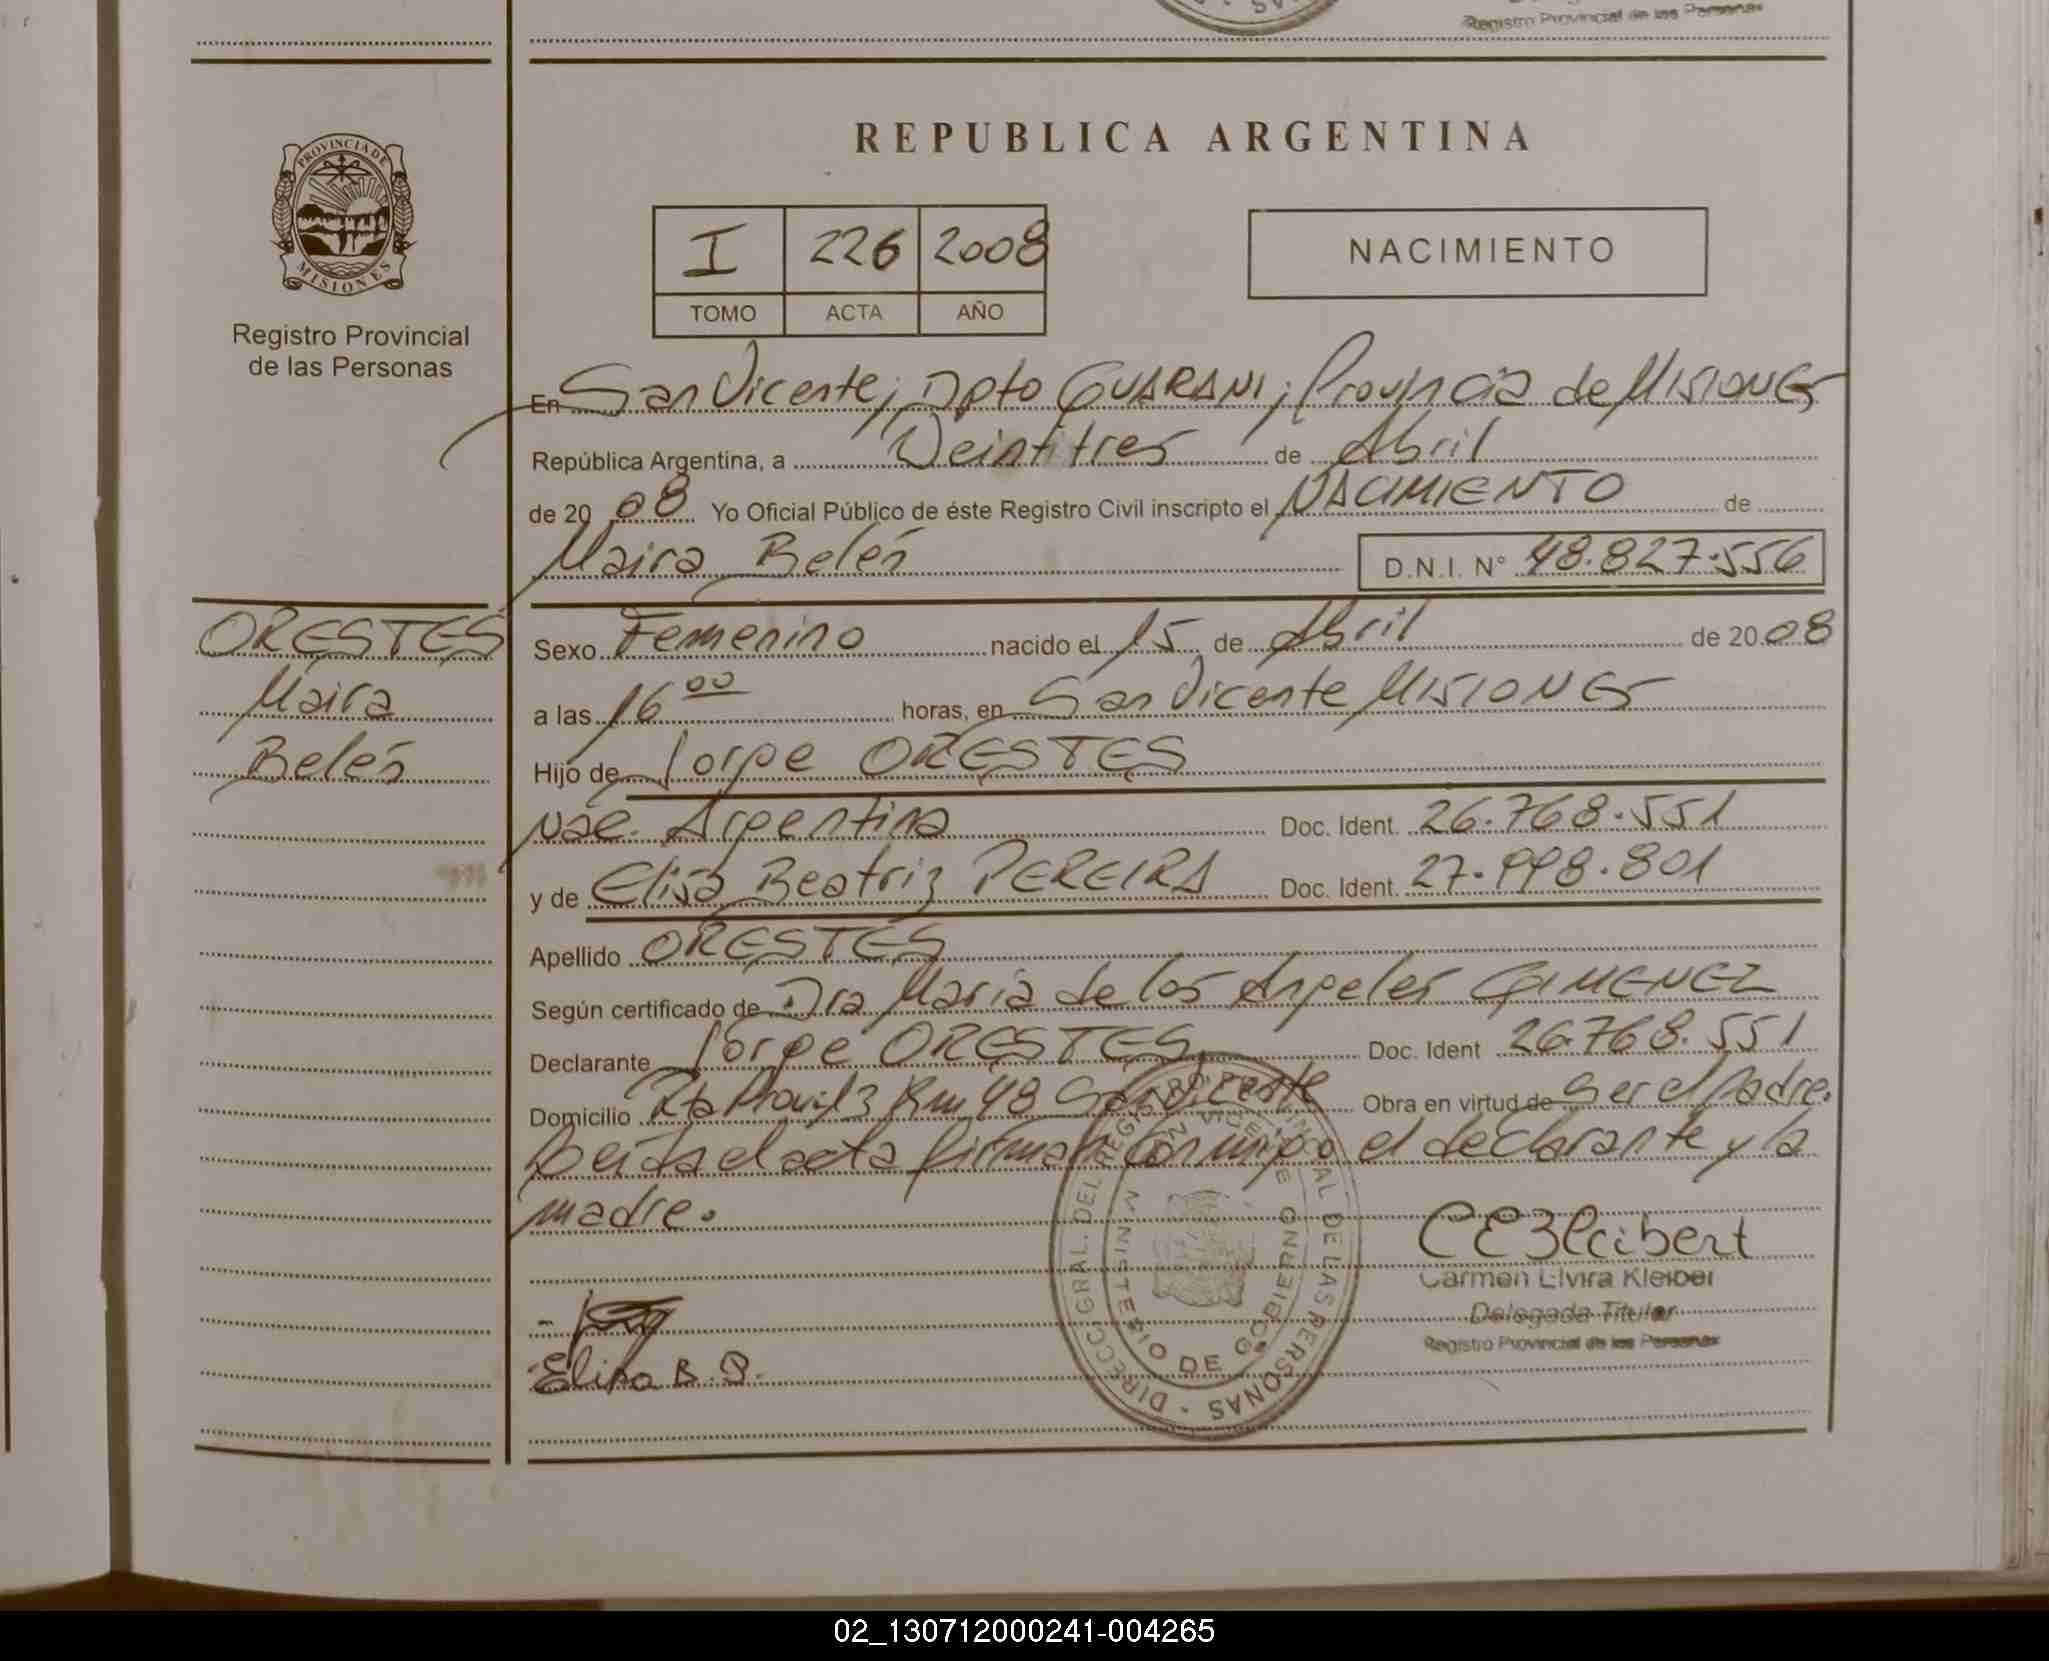 Registro Provincial de las Personas
REPUBLICA ARGENTINA
PROVINCIA DE
MISIONES
Registro Provincial
de las Personas
I 226 2008
TOMO ACTA AÑO
NACIMIENTO
En San Vicente, Dpto GUARANI, Provincia de MISIONES
República Argentina, a Veintitres de Abril
de 2008 Yo Oficial Público de éste Registro Civil inscripto el NACIMIENTO de
Maira Belén D.N.I. N° 48.827.556
ORESTES
Maira
Belén
Sexo Femenino nacido el 15 de Abril de 2008
a las 16 00 horas, en San Vicente MISIONES
Hijo de Jorge ORESTES
Nac. Argentina Doc. Ident. 26.768.551
y de Elisa Beatriz PEREIRA Doc. Ident. 27.998.801
Apellido ORESTES
Según certificado de Dra Maria de los Angeles GIMENEZ
Declarante Jorge ORESTES Doc. Ident 26.768.551
Domicilio Rta Provil 3 Km 48 San Vicente Obra en virtud de Ser el Padre.
Leida el acta firman conmigo el declarante y la
madre.
Carmen Elvira Kleiber
Delegada Titular
Registro Provincial de las Personas
Elisa B. P.
DIRECC. GRAL. DEL REGISTRO PROVINCIAL DE LAS PERSONAS
MINISTERIO DE GOBIERNO
SAN VICENTE
02_130712000241-004265